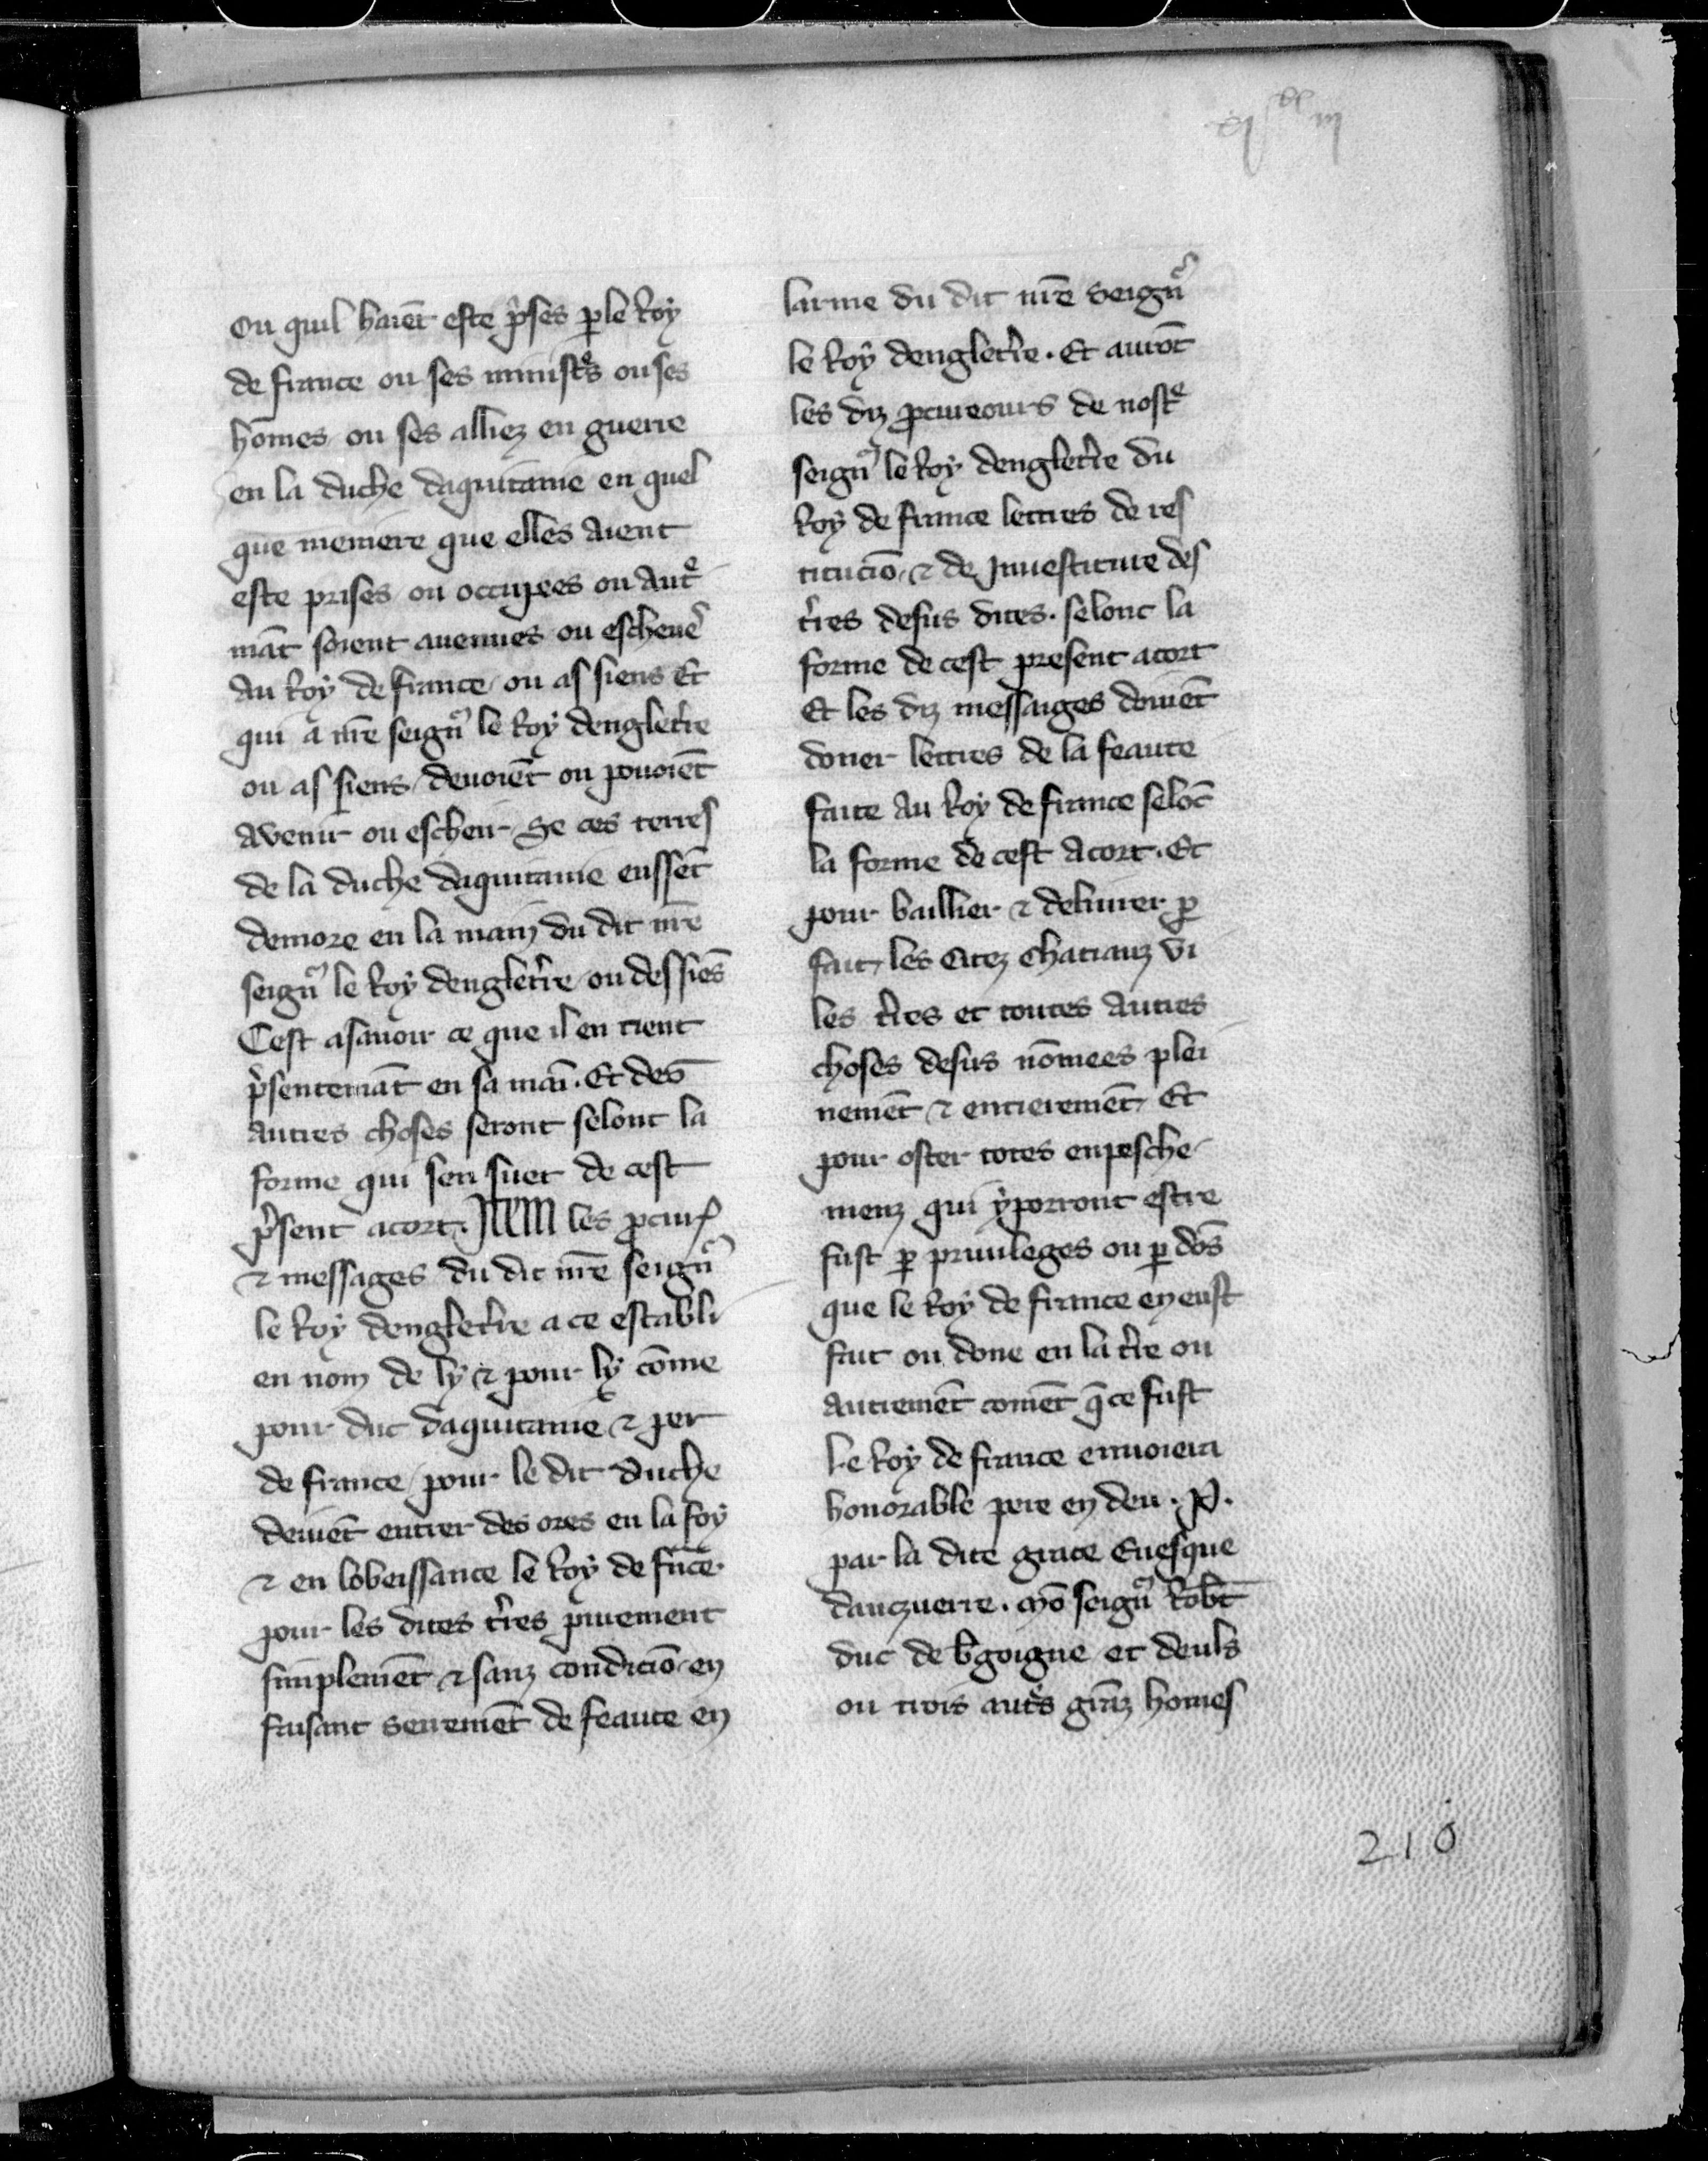 ou quil haiēt este p̉ses ꝑ le Roy
de france ou ses minist̉s ou ses
hōmes ou ses alliez en guerre
en la duche daquitanie en quel
que meniere que elles aient
este prises ou occupees ou autͤ
māt soient auenues ou escheuͤ
au Roy de france ou as siens Et
qui a nr̄e seign̉ le Roy denglet̉re
ou as siens deuoiēt ou pouoiēt
avenir ou escheir Se ces terres
de la duche daquitanie eussēt
demore en la main du dit nr̄e
seign̉ le Roy denglet̉re ou des siēs
Cest asauoir ce que il en tient
p̉sentemāt en sa maī. Et des
autres choses seront selont la
forme qui sen suet de cest
p̉sent acort. Item les ꝓcur̉
⁊ messages du dit nr̄e seign̉
le Roy denglet̉re a ce establi
en nom de ly ⁊ pour ly cōme
pour duc daquitanie ⁊ per
de france pour le dit duche
deiuēt entrer des ores en la foy
⁊ en lobeissance le Roy de fn̄ce.
pour les dites t̉res purement
simplemēt ⁊ sanz condiciō en
faisant serremēt de feaute en
larme du dit nr̄e seign̉
le Roy denglet̉re. Et aurōt
les diz ꝓcureours de nostͤ
seign̉ le Roy denglet̉re du
Roy de france lettres de res
titucio ⁊ de Inuestiture des
t̉res desus dites. selont la
forme de cest present acort
Et les diz messaiges doiuēt
doner lettres de la feaute
faite au Roy de france selōt
la forme de cest acort. Et
pour baillier ⁊ deliurer ꝑ
fait les Citez chatiauz vi
les t̉res et toutes autres
choses desus nōmees plei
nemēt ⁊ entieremēt Et
pour oster totes enpesche
menz qui y porront estre
fust ꝑ priuileges ou ꝑ dōs
que le Roy de france en eust
fait ou done en la t̉re ou
autremēt comēt q̄ ce fust
Le Roy de france enuoiera
honorable pere en deu. P.
par la dite grace Euesque
dauczuerre. Mō seign̉ Rob̄t
duc de b̄goigne et deuls
ou trois aut̉s grāz homes
210